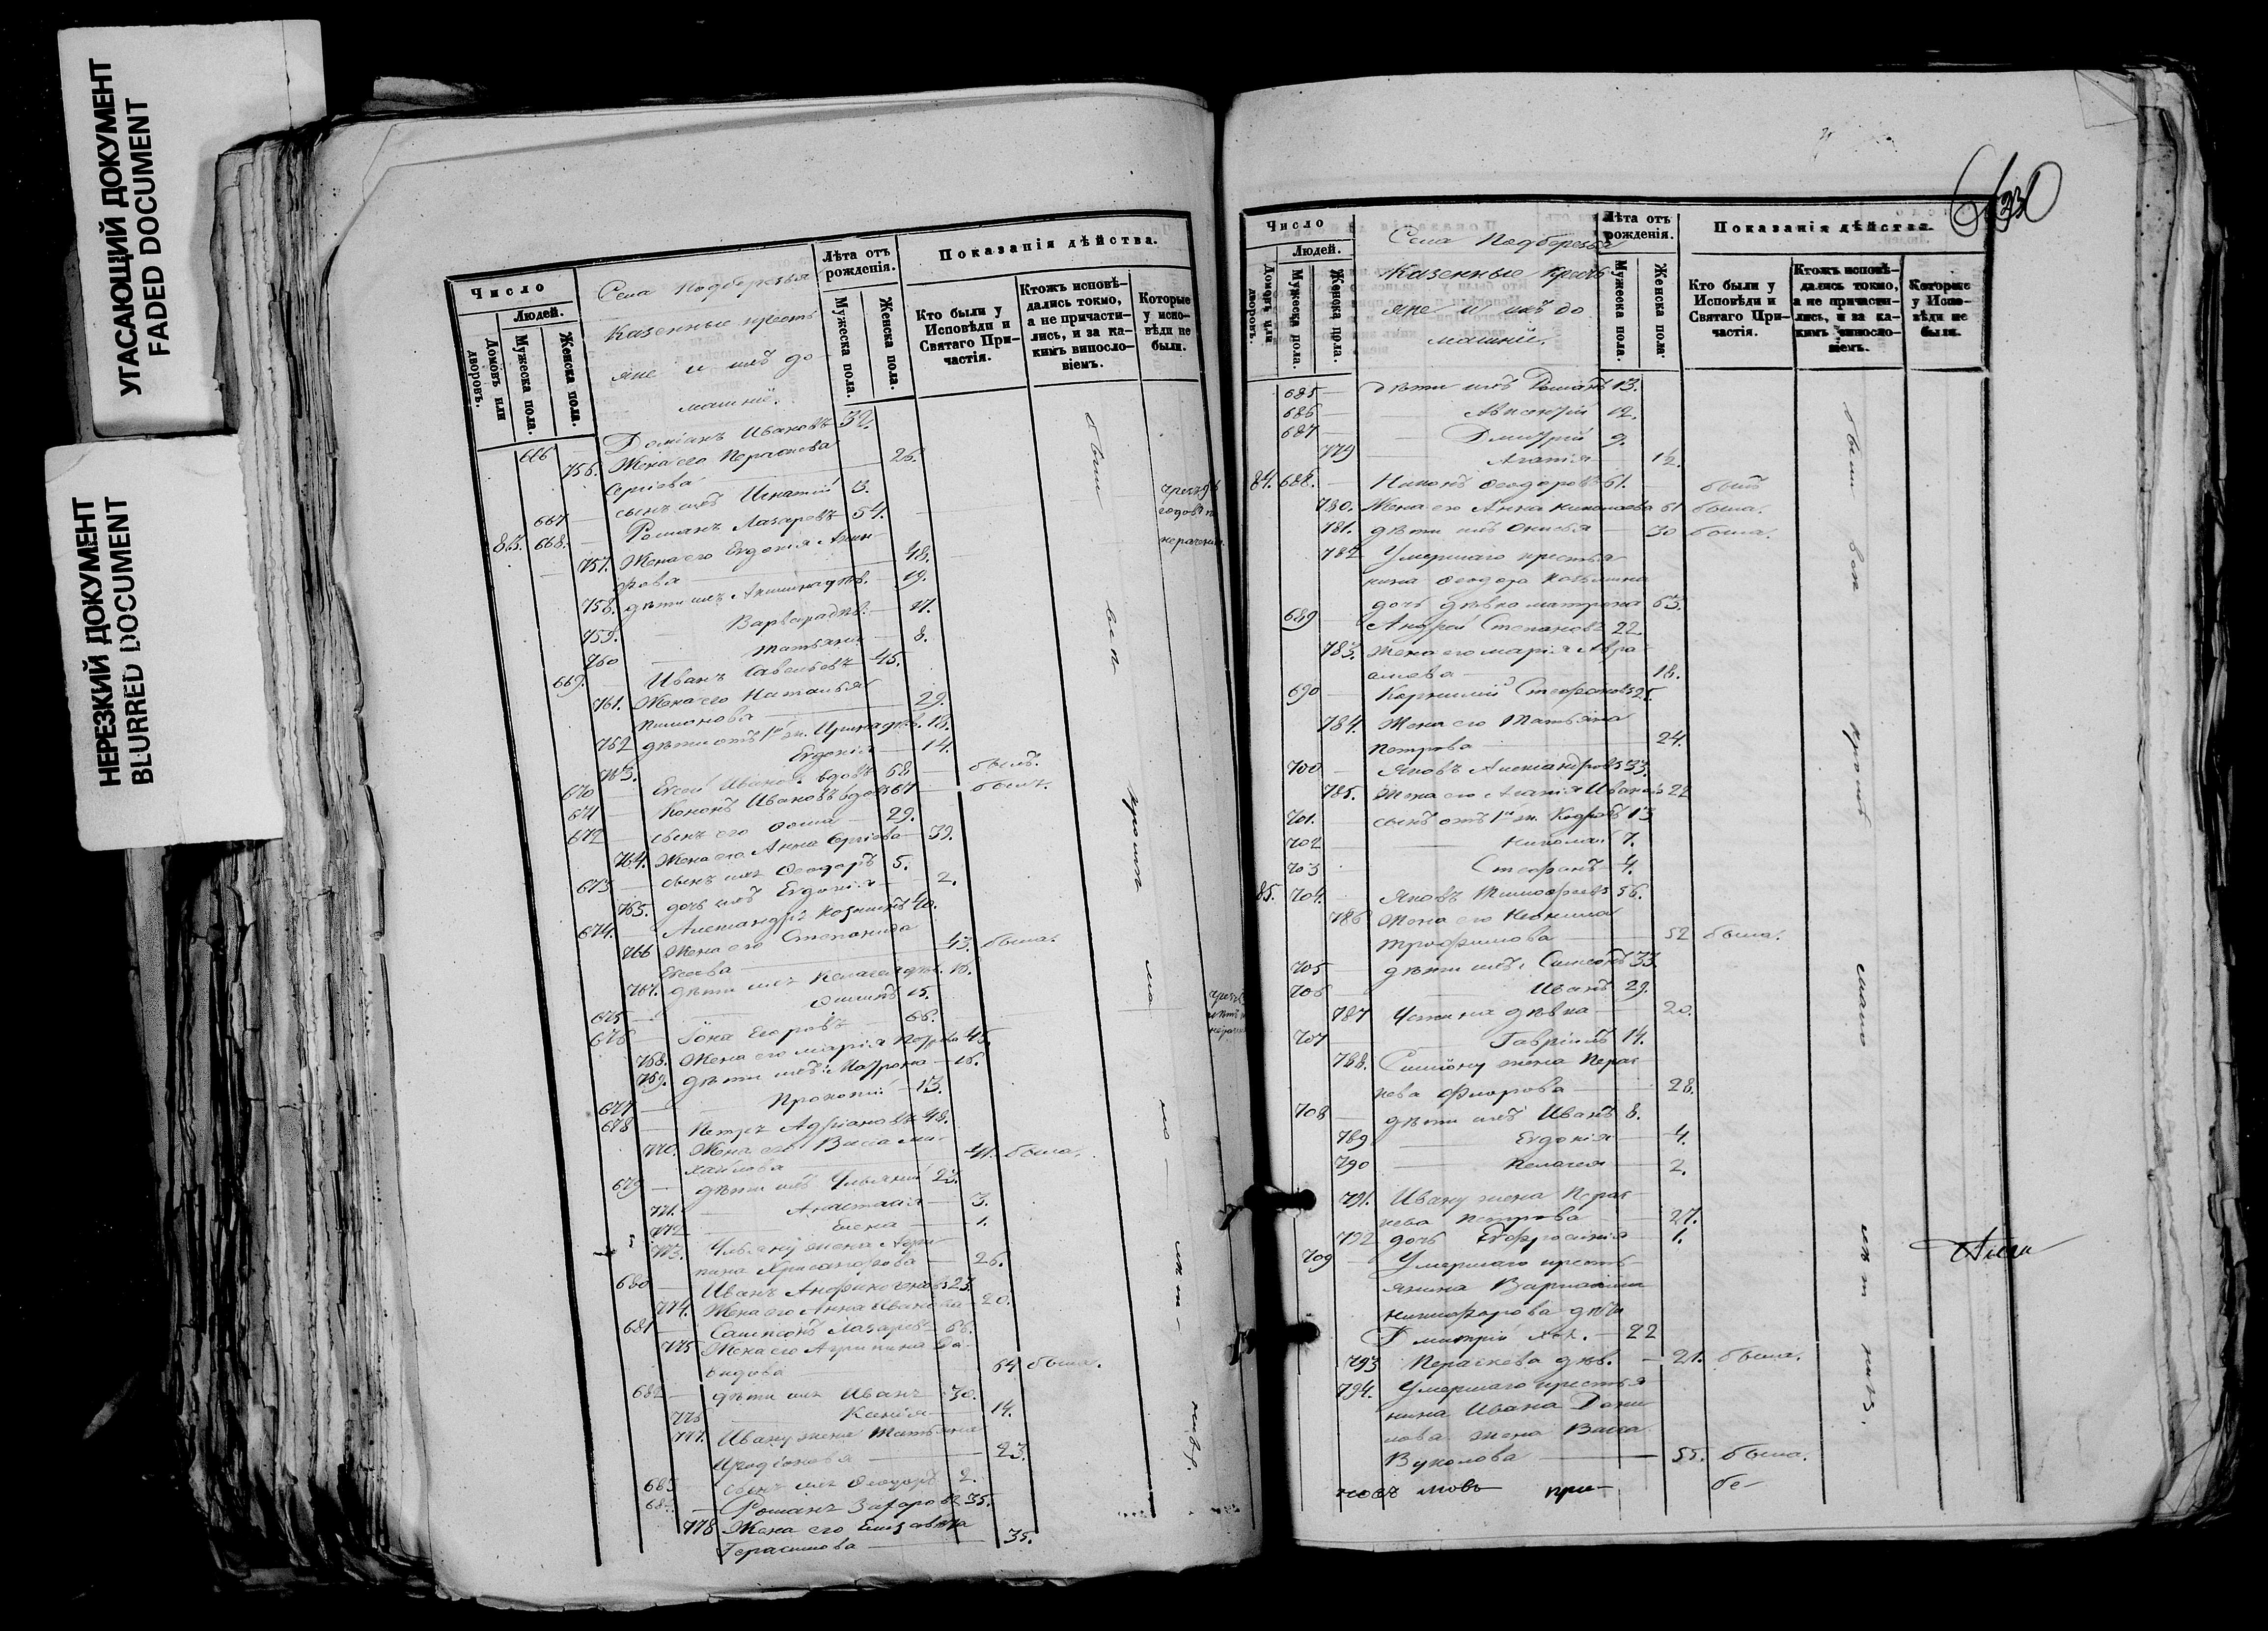 УГАСАЮЩИЙ ДОКУМЕНТ
FADED DOCUMENT
НЕРЕЗКИЙ ДОКУМЕНТ
BLURRED DOCUMENT
Число
Людей.
Домовъ или дворовъ.
Мужеска пола.
Женска пола.
Села Подберезья
Казенные кресть
яне и ихъ до
машніе.
Лѣта отъ рожденія.
Мужеска пола.
Женска пола.
Показанія дѣйства.
Кто были у Исповѣди и Святаго Причастія.
Ктожъ исповѣдались токмо, а не причастились, и за какимъ винословіемъ.
Которые у исповѣди не были.
666 Доміанъ Ивановъ 32.
756. Жена его Параскева
Сергіева 26.
667 — сынъ ихъ Игнатій 3.
83. 668. — Романъ Лазаревъ 54.
757. Жена его Евдокія
48.
758. дѣти ихъ Акилина дѣв. 19.
759. Варвара дѣв. 17.
760 Татьяна 8.
669. Иванъ Савельевъ 45.
761. Жена его Наталья
29.
762 дѣти отъ 1й ж. Ирина дѣв. 18.
763. Евдокія 14.
670 Евсей Ивановъ вдовъ 68 — былъ.
671 Кононъ Ивановъ вдовъ 67 — былъ.
672 сынъ его Фома 29.
764. Жена его Анна Сергіева 39.
673 — сынъ ихъ Ѳеодоръ 5.
765. дочь ихъ Евдокія 2.
674. Александръ Козминъ 40.
766 Жена его Степанида
Евсеева 43. была.
767. дѣти ихъ Пелагея дѣв. 18.
675 15.
676 — Іона Егоровъ 66.
768. Жена его Марія Петрова 45.
769. дѣти ихъ: Матрона 16.
677 — Прокопій 13.
678 — Петръ Адріановъ 48.
770. Жена его Васса Ми
хайлова 41. была.
679 — дѣти ихъ Ульянъ 23.
771. Анастасія 3.
772 Елена 1.
773. Ульяну жена Агри
пина Хрисанфова 26.
680 Иванъ Анфиногеновъ 23.
774. Жена его Анна Иванова 20.
681 Сампсонъ Лазаревъ 66.
775 Жена его Агрипина Да
выдова 64 была.
682 — дѣти ихъ Иванъ 30.
776 Ксенія 14.
777. Ивану жена Татьяна
Иродіонова 23.
683 сынъ ихъ Ѳеодоръ 2.
684 — Романъ Захаровъ 35.
778 Жена его Елизавета
Герасимова 35.
были
всѣ
кромѣ
Число
Людей.
Домовъ или дворовъ.
Мужеска пола.
Женска пола.
Села Подберезья
Казенные кресть
яне и ихъ до
машніе.
Лѣта отъ рожденія.
Мужеска пола.
Женска пола.
Показанія дѣйства.
Кто были у Исповѣди и Святаго Причастія.
Ктожъ исповѣдались токмо, а не причастились, и за какимъ винословіемъ.
Которые у Исповѣди не были.
685 — дѣти ихъ Романъ 13.
686 — Авксентій 12.
687 — Дмитрій 9.
779 Агапія 12.
84. 688. — Никонъ Ѳеодоровъ 61. — былъ
780. Жена его Анна Николаева 61 была.
781. дѣти ихъ Онисья 30 была.
782 Умершаго крестья
нина Ѳеодора Козьмина
дочь дѣвка Матрена 63.
689 — Андрей Степановъ 22.
783. Жена его Марія Авра
амова 18.
690 — Корнилій Стефановъ 25.
784. Жена его Татьяна
Петрова 24.
700 — Яковъ Александровъ 33.
785. Жена его Агапія Иванова 22
701. — сынъ отъ 1й ж. 13
702 Николай 7.
703 Стефанъ 4.
85. 704. — Яковъ Тимофеевъ 56.
786 Жена его Неонила
Трофимова 52 была.
705 дѣти ихъ: Симеонъ 33.
706 Иванъ 29.
787 Устина дѣвка 20.
707 Гавріилъ 14.
788. Симеону жена Парас
кева Флорова 28.
708 — дѣти ихъ Иванъ 8.
789. Евдокія 4.
790 Пелагея 2.
791. Ивану жена Парас
кева Петрова 27.
792 дочь Евфросинія 1.
709 — Умершаго кресть
янина
Никифорова дѣти
Дмитрій хол. 22
793 Параскева дѣв. — 21. была.
794. Умершаго крестья
нина Ивана Дани
лова жена Васса
Вуколова 55. была.
были
всѣ
кромѣ